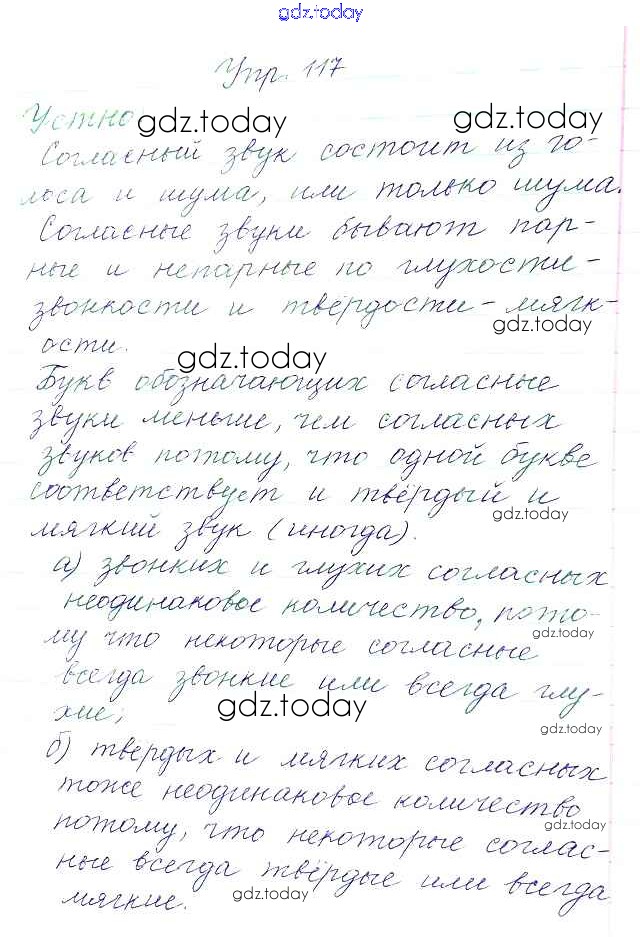 gdz.today
Упр. 117
Устно
gdz.today
gdz.today
Согласный звук состоит из го-
лоса и шума, или только шума.
Согласные звуки бывают пар-
ные и непарные по глухости-
звонкости и твёрдости-мягк-
gdz.today
ости.
gdz.today
Букв обозначающих согласные
звуки меньше, чем согласных
звуков потому, что одной букве
соответствует и твёрдый и
gdz.today
мягкий звук (иногда).
а) звонких и глухих согласных
неодинаковое количество, пото-
gdz.today
му что некоторые согласные
всегда звонкие или всегда глу-
gdz.today
хие;
gdz.today
б) твёрдых и мягких согласных
тоже неодинаковое количество
gdz.today
потому, что некоторые соглас-
ные всегда твёрдые или всегда
gdz.today
мягкие.